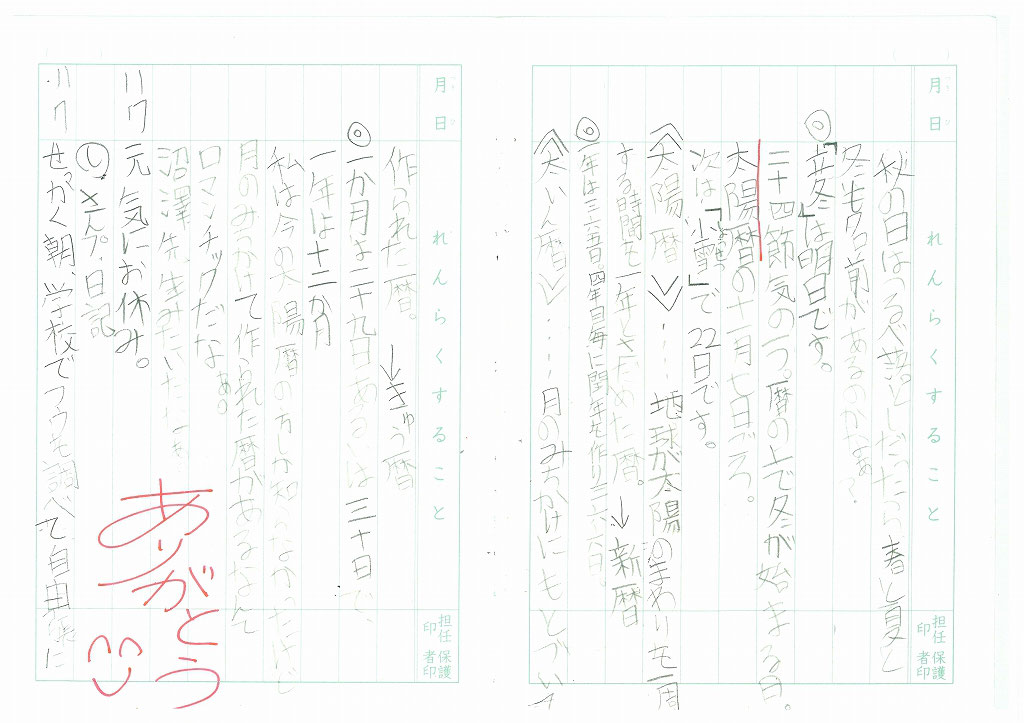 月 日
れんらくすること
担任印
保護者印
秋の日はつるべ落としだったら春と夏と
冬も名前があるのかなぁ?
◎「立冬」は明日です。
二十四節気の一つ。暦の上で冬が始まる日。
太陽暦の十一月七日ごろ。
次は「小雪」で22日です。
しょうせつ
≪太陽暦≫……地球が太陽のまわりを一周
する時間を一年とさだめた暦。→新暦
◎一年は三六五日。四年目毎に閏年を作り三六六日。
≪太いん暦≫……月のみちかけにもとづいて
月 日
れんらくすること
担任印
保護者印
作られた暦。→きゅう暦
◎一か月は二十九日あるいは三十日で、
一年は十二か月
私は今の太陽暦の方しか知らなかったけど
月のみちかけで作られた暦があるなんて
ロマンチックだなぁ。
沼澤先生みたいだなぁ…
11/7 元気にお休み。
し さんプ。日記
11/7 せっかく朝、学校でフウを調べて自由帳に
ありがとう